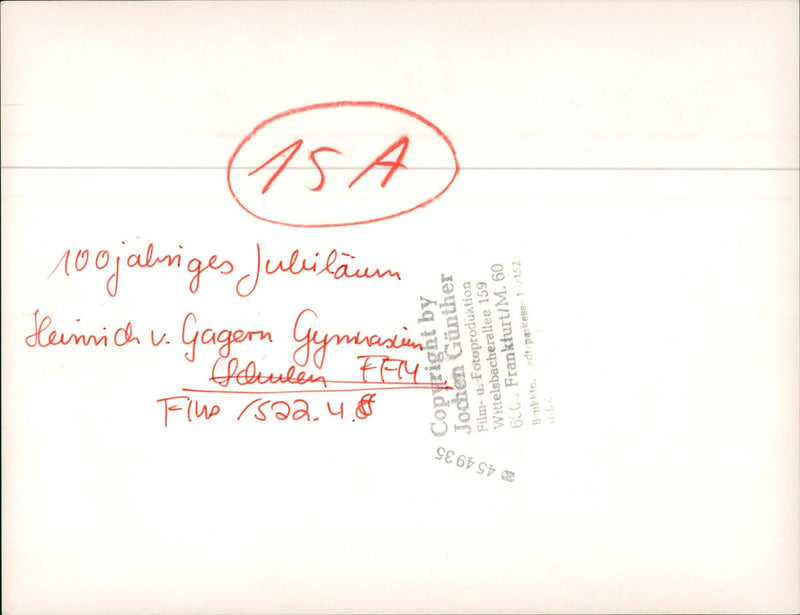 15A
100jähriges Jubiläum
Heinrich v. Gagern Gymnasium
Schulen FFM
1522.4.8
Copyright by
Jochen Günther
Film- u. Fotoproduktion
Wittelsbacherallee 159
Frankfurt/M. 60
☎ 454935